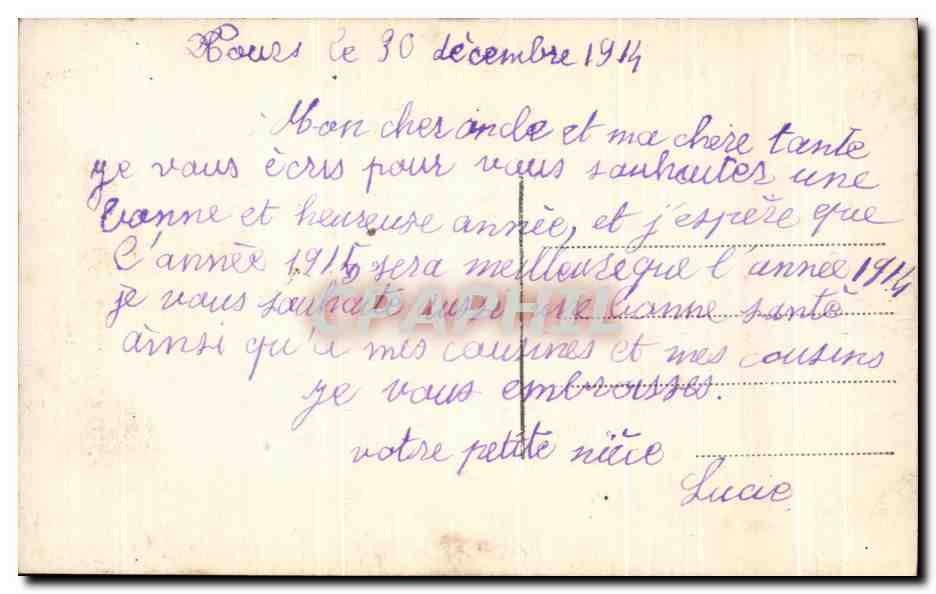 Tours le 30 décembre 1914
Mon cher oncle et ma chère tante
je vous écris pour vous souhaiter une
bonne et heureuse année, et j'espère que
l'année 1915 sera meilleure que l'année 1914
je vous souhaite aussi une bonne santé
ainsi qu'à mes cousines et mes cousins
je vous embrasses.
votre petite nièce
Lucie
CPAPHIL